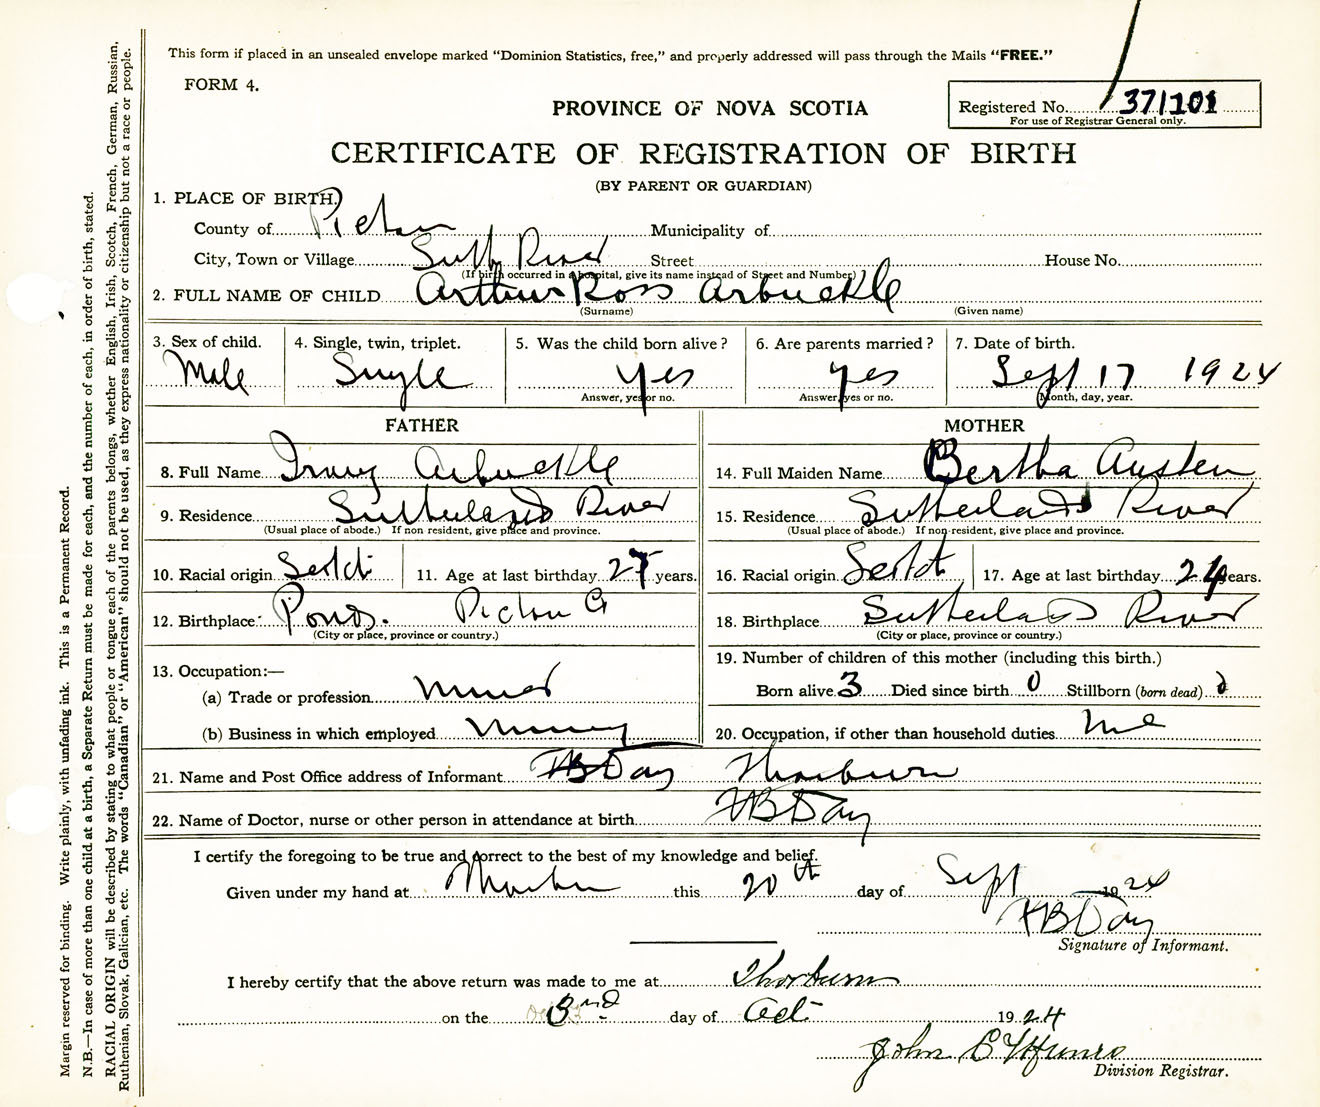 This form if placed in an unsealed envelope marked "Dominion Statistics, free," and properly addressed will pass through the Mails "FREE."
FORM 4.
PROVINCE OF NOVA SCOTIA
Registered No. 371101
For use of Registrar General only.
CERTIFICATE OF REGISTRATION OF BIRTH
(BY PARENT OR GUARDIAN)
1. PLACE OF BIRTH.
County of Pictou Municipality of
City, Town or Village Suth River Street House No.
(If birth occurred in a hospital, give its name instead of Street and Number)
2. FULL NAME OF CHILD Arthur Ross Arbuckle
(Surname) (Given name)
3. Sex of child. 4. Single, twin, triplet. 5. Was the child born alive? 6. Are parents married? 7. Date of birth.
Male Single Yes Yes Sept 17 1924
Answer, yes or no. Answer, yes or no. Month, day, year.
FATHER MOTHER
8. Full Name Irving Arbuckle 14. Full Maiden Name Bertha Austen
9. Residence Sutherlands River 15. Residence Sutherlands River
(Usual place of abode.) If non resident, give place and province. (Usual place of abode.) If non-resident, give place and province.
10. Racial origin Scotch 11. Age at last birthday 27 years. 16. Racial origin Scotch 17. Age at last birthday 24 years.
12. Birthplace Pictou 18. Birthplace Sutherlands River
(City or place, province or country.) (City or place, province or country.)
13. Occupation:— 19. Number of children of this mother (including this birth.)
(a) Trade or profession Miner Born alive 3 Died since birth 0 Stillborn (born dead)
(b) Business in which employed Mining 20. Occupation, if other than household duties
21. Name and Post Office address of Informant Day Thorburn
22. Name of Doctor, nurse or other person in attendance at birth HB Day
I certify the foregoing to be true and correct to the best of my knowledge and belief.
Given under my hand at Thorburn this 20th day of Sept 1924
HB Day
Signature of Informant.
I hereby certify that the above return was made to me at Thorburn
on the 3rd day of Oct. 1924
John Munro
Division Registrar.
Margin reserved for binding. Write plainly, with unfading ink. This is a Permanent Record.
N.B.—In case of more than one child at a birth, a Separate Return must be made for each, and the number of each, in order of birth, stated.
RACIAL ORIGIN will be described by stating to what people or tongue each of the parents belongs, whether English, Irish, Scotch, French, German, Russian,
Ruthenian, Slovak, Galician, etc. The words "Canadian" or "American" should not be used, as they express nationality or citizenship but not a race or people.